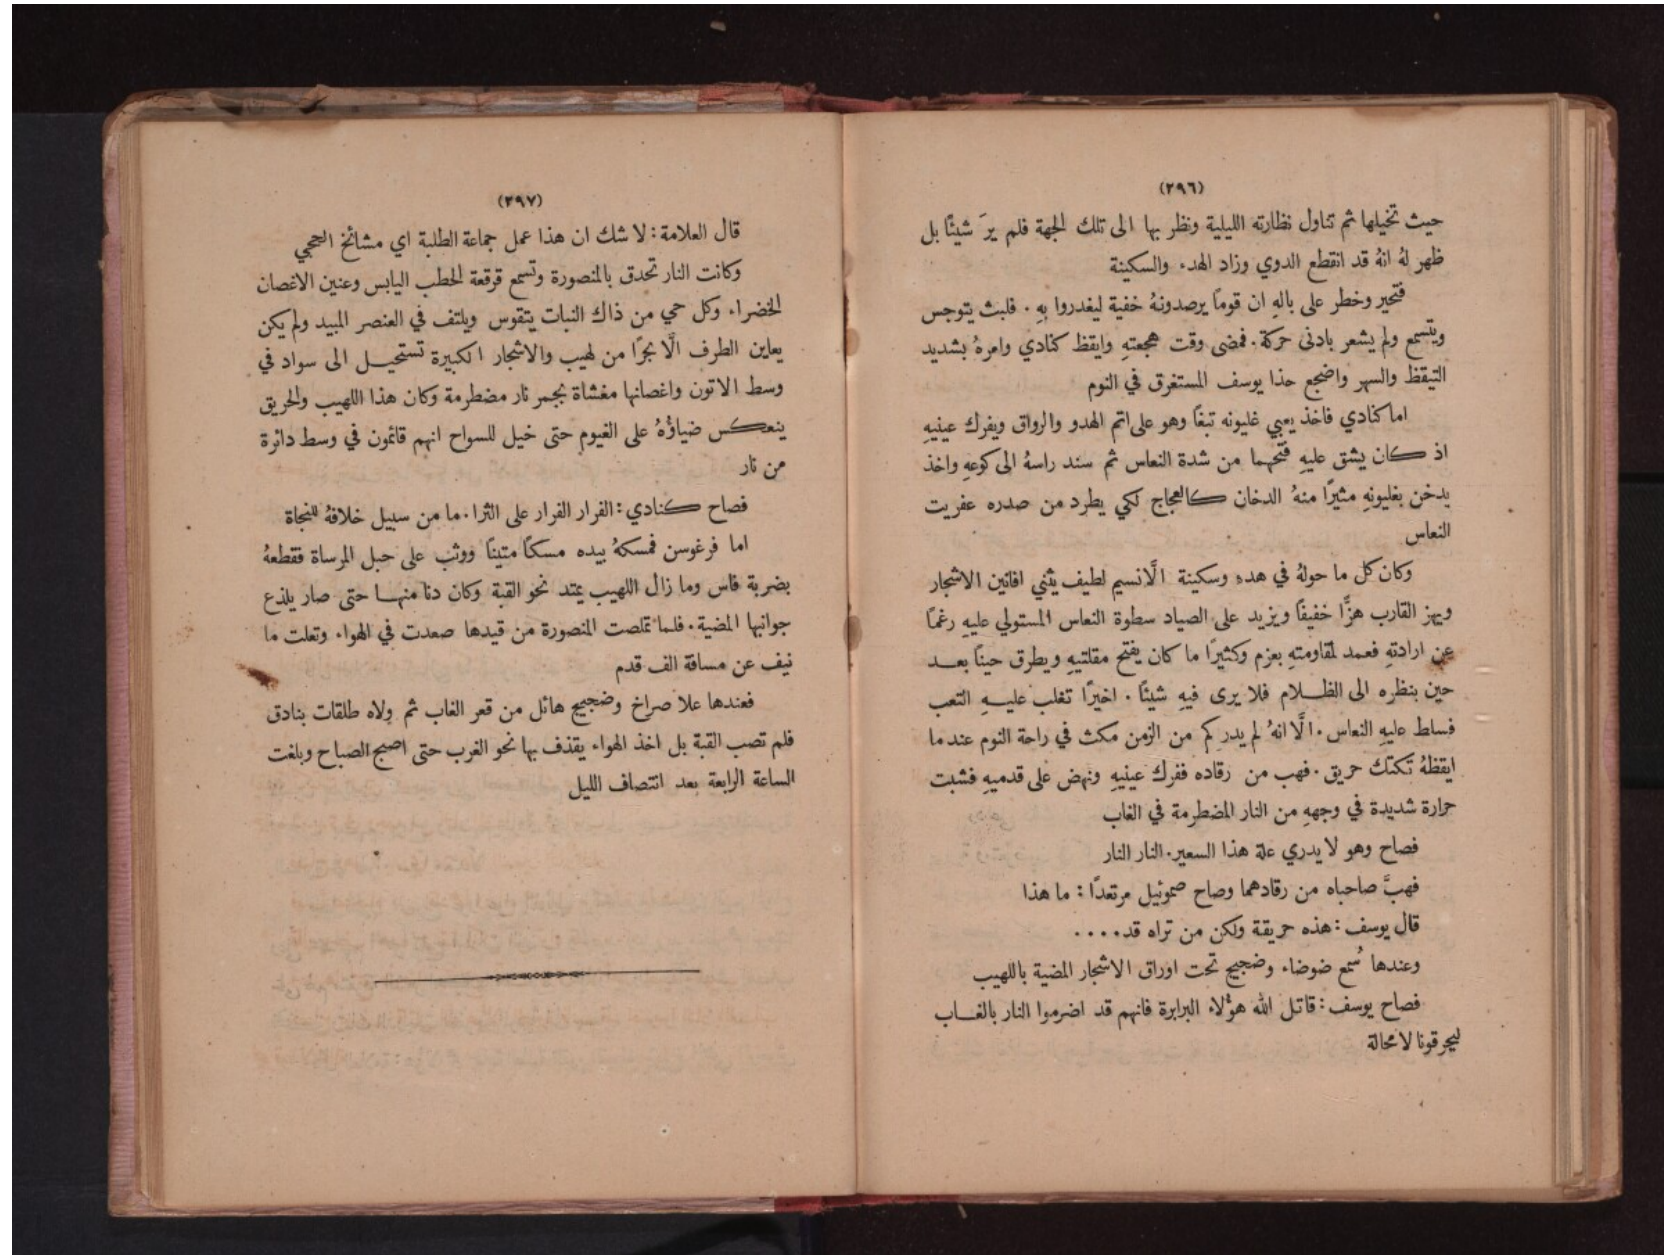 (٢٩٦)
حيث تخيلها ثم تناول نظارته الليلية ونظر بها الى تلك الجهة فلم يرَ شيئًا بل
ظهر لهُ انهُ قد انقطع الدوي وزاد الهدء والسكينة
فتحير وخطر على بالهِ ان قومًا يرصدونهُ خفية ليغدروا بهِ . فلبث يتوجس
ويتسمع ولم يشعر بادنى حركة . فمضى وقت هجعتهِ وايقظ كنادي وامرهُ بشديد
التيقظ والسهر واضجع حذا يوسف المستغرق في النوم
اما كنادي فاخذ يعبي غليونه تبغًا وهو على اتم الهدو والرواق ويفرك عينيهِ
اذ كان يشق عليهِ فتحهما من شدة النعاس ثم سند راسهُ الى كوعهِ واخذ
يدخن بغليونهِ مثيرًا منهُ الدخان كالعجاج لكي يطرد من صدره عفريت
النعاس
وكان كل ما حولهُ في هدءٍ وسكينة الَّا نسيم لطيف يثني افانين الاشجار
ويهز القارب هزًّا خفيفًا ويزيد على الصياد سطوة النعاس المستولي عليهِ رغمًا
عن ارادتهِ فعمد لمقاومتهِ بعزم وكثيرًا ما كان يفتح مقلتيهِ ويطرق حينًا بعد
حين بنظره الى الظلام فلا يرى فيهِ شيئًا . اخيرًا تغلب عليهِ التعب
فساط عليهِ النعاس . الَّا انهُ لم يدر كم من الزمن مكث في راحة النوم عندما
ايقظهُ تكتك حريق . فهب من رقاده ففرك عينيهِ ونهض على قدميهِ فشبت
حرارة شديدة في وجههِ من النار المضطرمة في الغاب
فصاح وهو لا يدري علة هذا السعير . النار النار
فهبَّ صاحباه من رقادهما وصاح صموئيل مرتعدًا : ما هذا
قال يوسف : هذه حريقة ولكن من تراه قد ....
وعندها سُمع ضوضاء وضجيج تحت اوراق الاشجار المضية باللهيب
فصاح يوسف : قاتل الله هؤلاء البرابرة فانهم قد اضرموا النار بالغاب
ليحرقونا لا محالة
(٢٩٧)
قال العلامة : لا شك ان هذا عمل جماعة الطلبة اي مشائخ الججي
وكانت النار تحدق بالمنصورة وتسمع قرقعة الحطب اليابس وعنين الاغصان
الخضراء وكل حمي من ذاك النبات يتقوس ويلتف في العنصر المبيد ولم يكن
يعاين الطرف الَّا بحرًا من لهيب والاشجار الكبيرة تستحيل الى سواد في
وسط الاتون واغصانها مغشاة بجمر نار مضطرمة وكان هذا اللهيب والحريق
ينعكس ضياؤُهُ على الغيوم حتى خيل للسواح انهم قائمون في وسط دائرة
من نار
فصاح كنادي : الفرار الفرار على الثرا . ما من سبيل خلافهُ للنجاة
اما فرغوسن فمسكهُ بيده مسكًا متينًا ووثب على حبل المرساة فقطعهُ
بضربة فاس وما زال اللهيب يمتد نحو القبة وكان دنا منها حتى صار يلذع
جوانبها المضية . فلما تملصت المنصورة من قيدها صعدت في الهواء وتعلت ما
نيف عن مسافة الف قدم
فعندها علا صراخ وضجيج هائل من قعر الغاب ثم ولاه طلقات بنادق
فلم تصب القبة بل اخذ الهواء يقذف بها نحو الغرب حتى اصبح الصباح وبلغت
الساعة الرابعة بعد انتصاف الليل